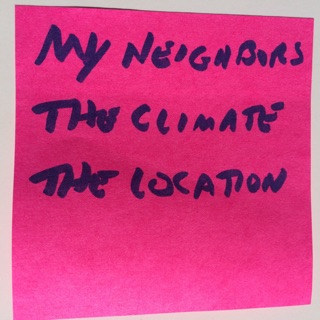 MY NEIGHBORS
THE CLIMATE
THE LOCATION